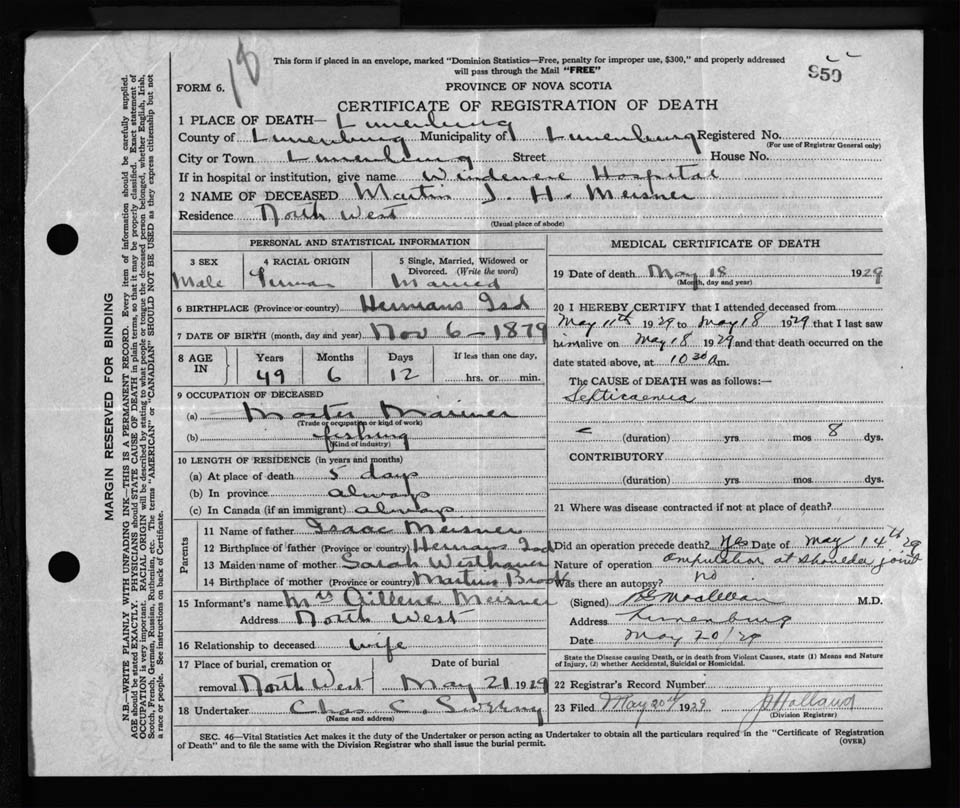 18
This form if placed in an envelope, marked "Dominion Statistics—Free, penalty for improper use, $300," and properly addressed
will pass through the Mail "FREE"
950
FORM 6.
PROVINCE OF NOVA SCOTIA
CERTIFICATE OF REGISTRATION OF DEATH
1 PLACE OF DEATH— Lunenburg
County of Lunenburg Municipality of Lunenburg Registered No.
(For use of Registrar General only)
City or Town Lunenburg Street House No.
If in hospital or institution, give name Hospital
2 NAME OF DECEASED Martin J. H. Meisner
Residence North West
(Usual place of abode)
PERSONAL AND STATISTICAL INFORMATION
3 SEX
Male
4 RACIAL ORIGIN
German
5 Single, Married, Widowed or
Divorced. (Write the word)
Married
6 BIRTHPLACE (Province or country) Hermans Isd
7 DATE OF BIRTH (month, day and year) Nov 6 - 1879
8 AGE IN
Years Months Days If less than one day,
49 6 12 hrs. or min.
9 OCCUPATION OF DECEASED
(a) Master Mariner
(Trade or occupation or kind of work)
(b) fishing
(Kind of industry)
10 LENGTH OF RESIDENCE (in years and months)
(a) At place of death 5 days
(b) In province always
(c) In Canada (if an immigrant) always
Parents
11 Name of father Isaac Meisner
12 Birthplace of father (Province or country) Hermans Isd
13 Maiden name of mother Sarah Westhaver
14 Birthplace of mother (Province or country) Martins Brook
15 Informant's name Mrs Meisner
Address North West
16 Relationship to deceased wife
17 Place of burial, cremation or Date of burial
removal North West May 21 1929
18 Undertaker Chas C. Sweeny
(Name and address)
MEDICAL CERTIFICATE OF DEATH
19 Date of death May 18 1929
(Month, day and year)
20 I HEREBY CERTIFY that I attended deceased from
May 11th 1929 to May 18 1929 that I last saw
him alive on May 18 1929 and that death occurred on the
date stated above, at 10 30 Am.
The CAUSE of DEATH was as follows:—
Septicaemia
(duration) yrs. mos 8 dys.
CONTRIBUTORY
(duration) yrs. mos dys.
21 Where was disease contracted if not at place of death?
Did an operation precede death? Yes Date of May 14th 29
Nature of operation amputation at shoulder joint
Was there an autopsy? no
(Signed) M.D.
Address Lunenburg
Date May 20/29
State the Disease causing Death, or in death from Violent Causes, state (1) Means and Nature
of Injury, (2) whether Accidental, Suicidal or Homicidal.
22 Registrar's Record Number
23 Filed May 20th 1929 J Holland
(Division Registrar)
SEC. 46—Vital Statistics Act makes it the duty of the Undertaker or person acting as Undertaker to obtain all the particulars required in the "Certificate of Registration
of Death" and to file the same with the Division Registrar who shall issue the burial permit. (OVER)
MARGIN RESERVED FOR BINDING
N.B.—WRITE PLAINLY WITH UNFADING INK—THIS IS A PERMANENT RECORD. Every item of information should be carefully supplied.
AGE should be stated EXACTLY. PHYSICIANS should STATE CAUSE OF DEATH in plain terms, so that it may be properly classified. Exact statement of
OCCUPATION is very important. RACIAL ORIGIN will be described by stating to what people or tongue the deceased person belonged, whether English, Irish,
Scotch, French, German, Russian, Ruthenian, etc. The terms "AMERICAN" or "CANADIAN" SHOULD NOT BE USED as they express citizenship but not
a race or people. See instructions on back of Certificate.